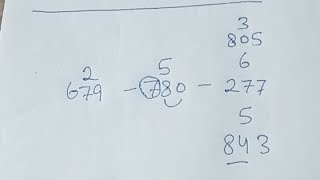 3
805
2 5 6
679 - 780 - 277
5
843